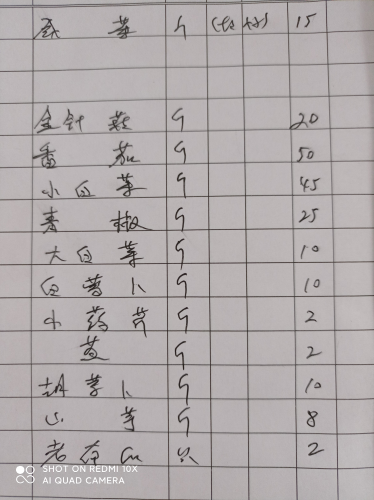 15
金针菇 斤 20
番茄 斤 50
小白菜 斤 45
青椒 斤 25
大白菜 斤 10
白萝卜 斤 10
小药芹 斤 2
斤 2
胡萝卜 斤 10
山芋 斤 8
老 只 2
SHOT ON REDMI 10X
AI QUAD CAMERA